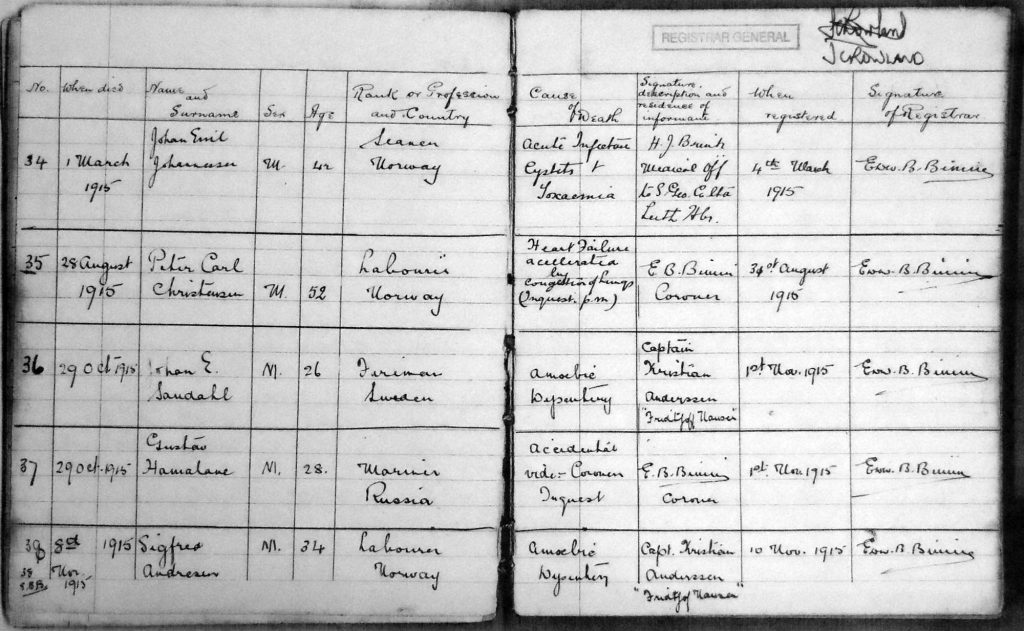 REGISTRAR GENERAL
JCRowland
JCROWLAND
No. When died Name and Surname Sex Age Rank or Profession and Country Cause of Death Signature, description and residence of informant When registered Signature of Registrar
34 1 March 1915 Johan Emil M. 42 Seaman Norway Acute Cystitis + Toxaemia H. J. Brink Medical Off 4th March 1915 Edw. B. Binnie
35 28 August 1915 Peter Carl Christensen M. 52 Labourer Norway Heart Failure accellerated by congestion of lungs (Inquest. p.m) E. B. Binnie Coroner 31st August 1915 Edw. B. Binnie
36 29 Oct 1915 Johan E. Sandahl M. 26 Fireman Sweden Amoebic Dysentery Captain Kristian Anderssen "Fridtjof Nansen" 1st Nov. 1915 Edw. B. Binnie
37 29 Oct. 1915 Gustav Hamalane M. 28. Mariner Russia Accidental vide:- Coroner Inquest E. B. Binnie Coroner 1st Nov. 1915 Edw. B. Binnie
38 8th Nov. 1915 Sigfred Andresen M. 34 Labourer Norway Amoebic Dysentery Capt. Kristian Anderssen "Fridtjof Nansen" 10 Nov. 1915 Edw. B. Binnie
38
E.B.B.